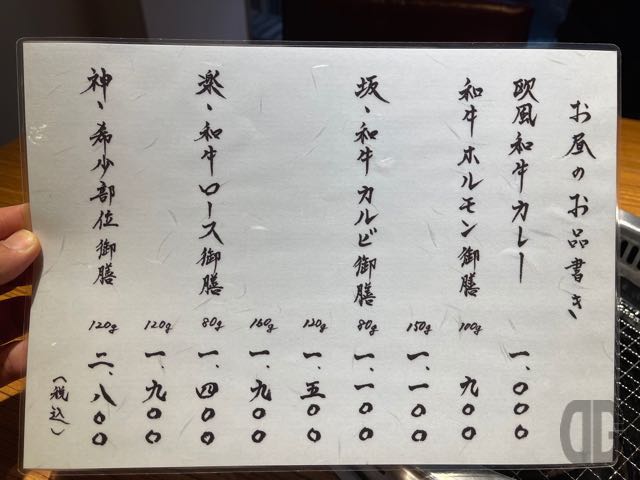 お昼のお品書き
欧風和牛カレー 一、〇〇〇
和牛ホルモン御膳 100g 九〇〇
150g 一、一〇〇
坂、和牛カルビ御膳 80g 一、一〇〇
120g 一、五〇〇
160g 一、九〇〇
楽、和牛ロース御膳 80g 一、四〇〇
120g 一、九〇〇
神、希少部位御膳 120g 二、八〇〇
(税込)
DG